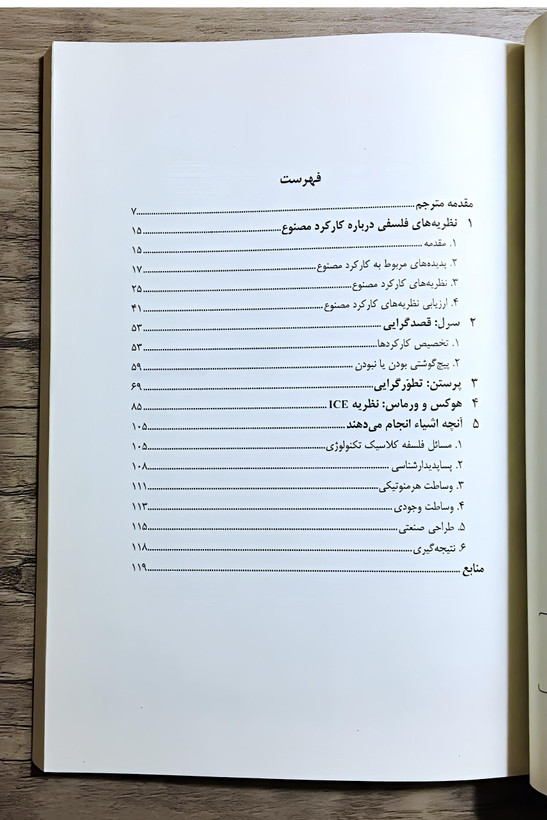 فهرست
مقدمه مترجم..........۷
۱ نظریه‌های فلسفی درباره کارکرد مصنوع..........۱۵
۱. مقدمه..........۱۵
۲. پدیده‌های مربوط به کارکرد مصنوع..........۱۷
۳. نظریه‌های کارکرد مصنوع..........۲۵
۴. ارزیابی نظریه‌های کارکرد مصنوع..........۴۱
۲ سرل: قصدگرایی..........۵۳
۱. تخصیص کارکردها..........۵۳
۲. پیچ‌گوشتی بودن یا نبودن..........۵۹
۳ پرستن: تطوّرگرایی..........۶۹
۴ هوکس و ورماس: نظریه ICE..........۸۵
۵ آنچه اشیاء انجام می‌دهند..........۱۰۵
۱. مسائل فلسفه کلاسیک تکنولوژی..........۱۰۵
۲. پساپدیدارشناسی..........۱۰۸
۳. وساطت هرمنوتیکی..........۱۱۱
۴. وساطت وجودی..........۱۱۳
۵. طراحی صنعتی..........۱۱۵
۶. نتیجه‌گیری..........۱۱۸
منابع..........۱۱۹